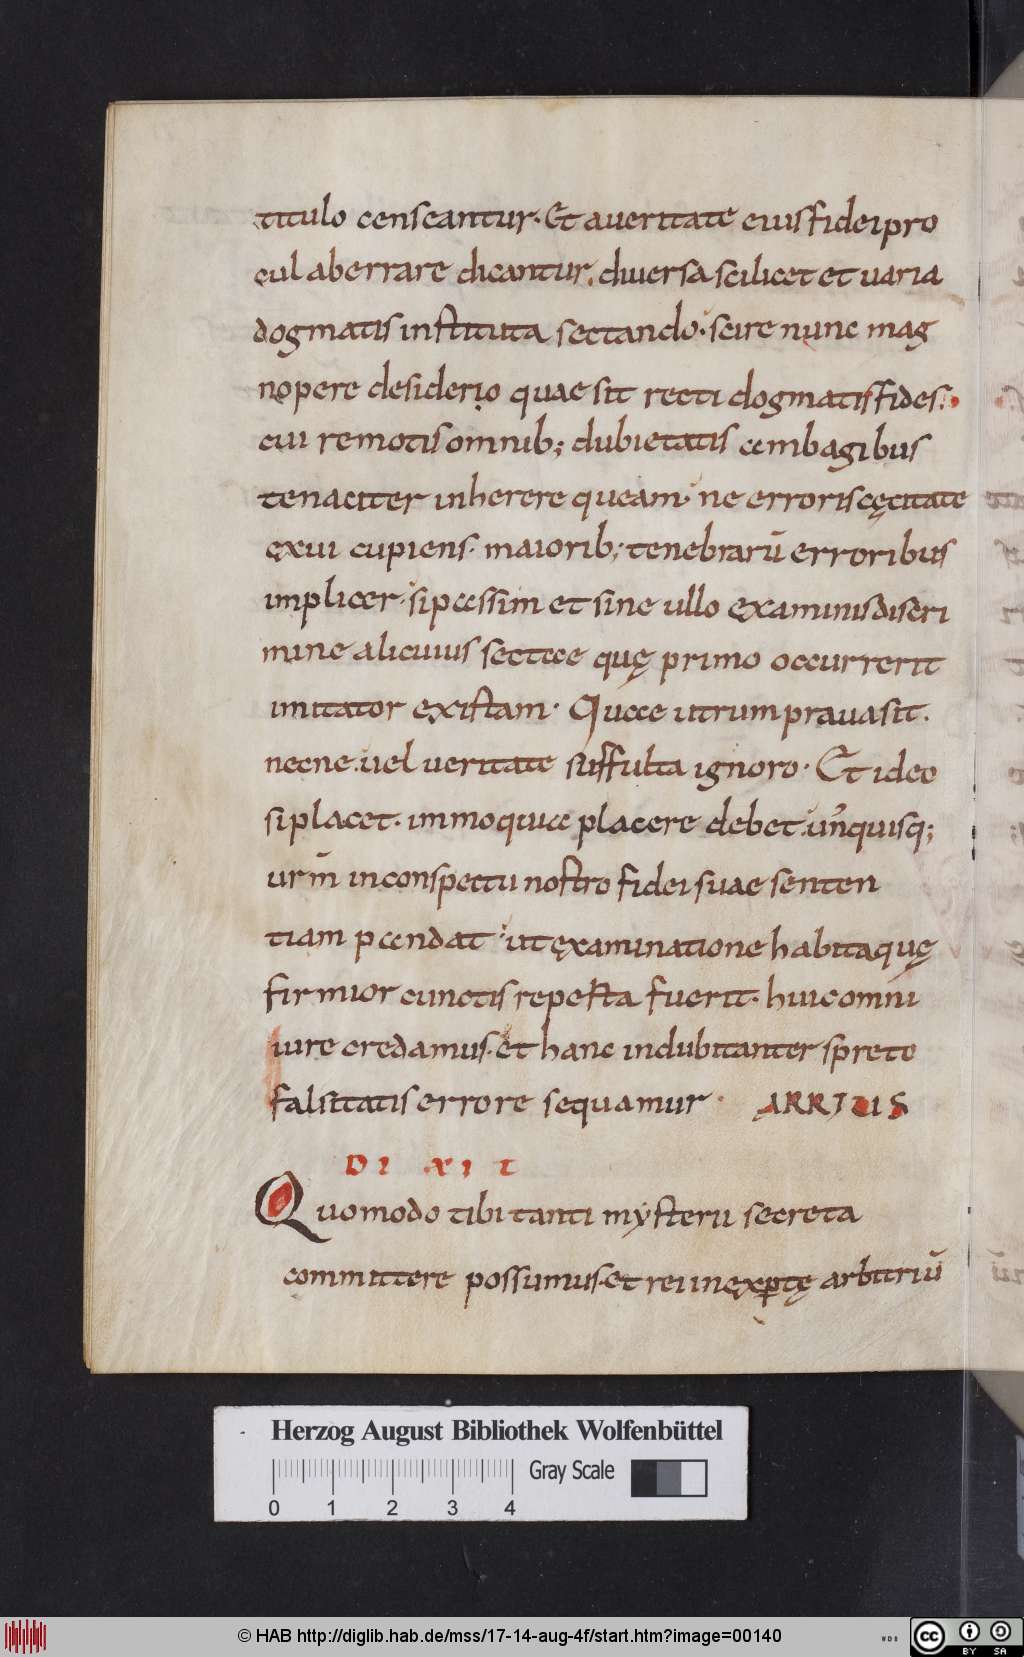 titulo censeantur. Et aueritate eius fidei pro
cul aberrare dicantur, diuersa scilicet et uaria
dogmatis instituta sectando. scire nunc mag
nopere desiderio quae sit recti dogmatis fides.
cui remotis omnib; dubietatis ambagibus
tenaciter inherere queam. ne erroris cęcitate
exui cupiens. maiorib; tenebrarū erroribus
implicer. si passim et sine ullo examinis discri
mine alicuius sectae quę primo occurrerit
imitator existam. Quae utrum praua sit.
necne. uel ueritate suffulta ignoro. Et ideo
si placet. immo quia placere debet. un̄quisq;
urm̄ inconspectu nostro fidei suae senten
tiam pandat. ut examinatione habita quę
firmior cunctis reperta fuerit. huic omni
iure credamus. et hanc indubitanter spreto
falsitatis errore sequamur. ARRIUS
DIXIT
Quomodo tibi tanti mysterii secreta
committere possumus. et rei inexptę arbitriū
Herzog August Bibliothek Wolfenbüttel
Gray Scale
0 1 2 3 4
© HAB http://diglib.hab.de/mss/17-14-aug-4f/start.htm?image=00140
WDB
cc BY SA